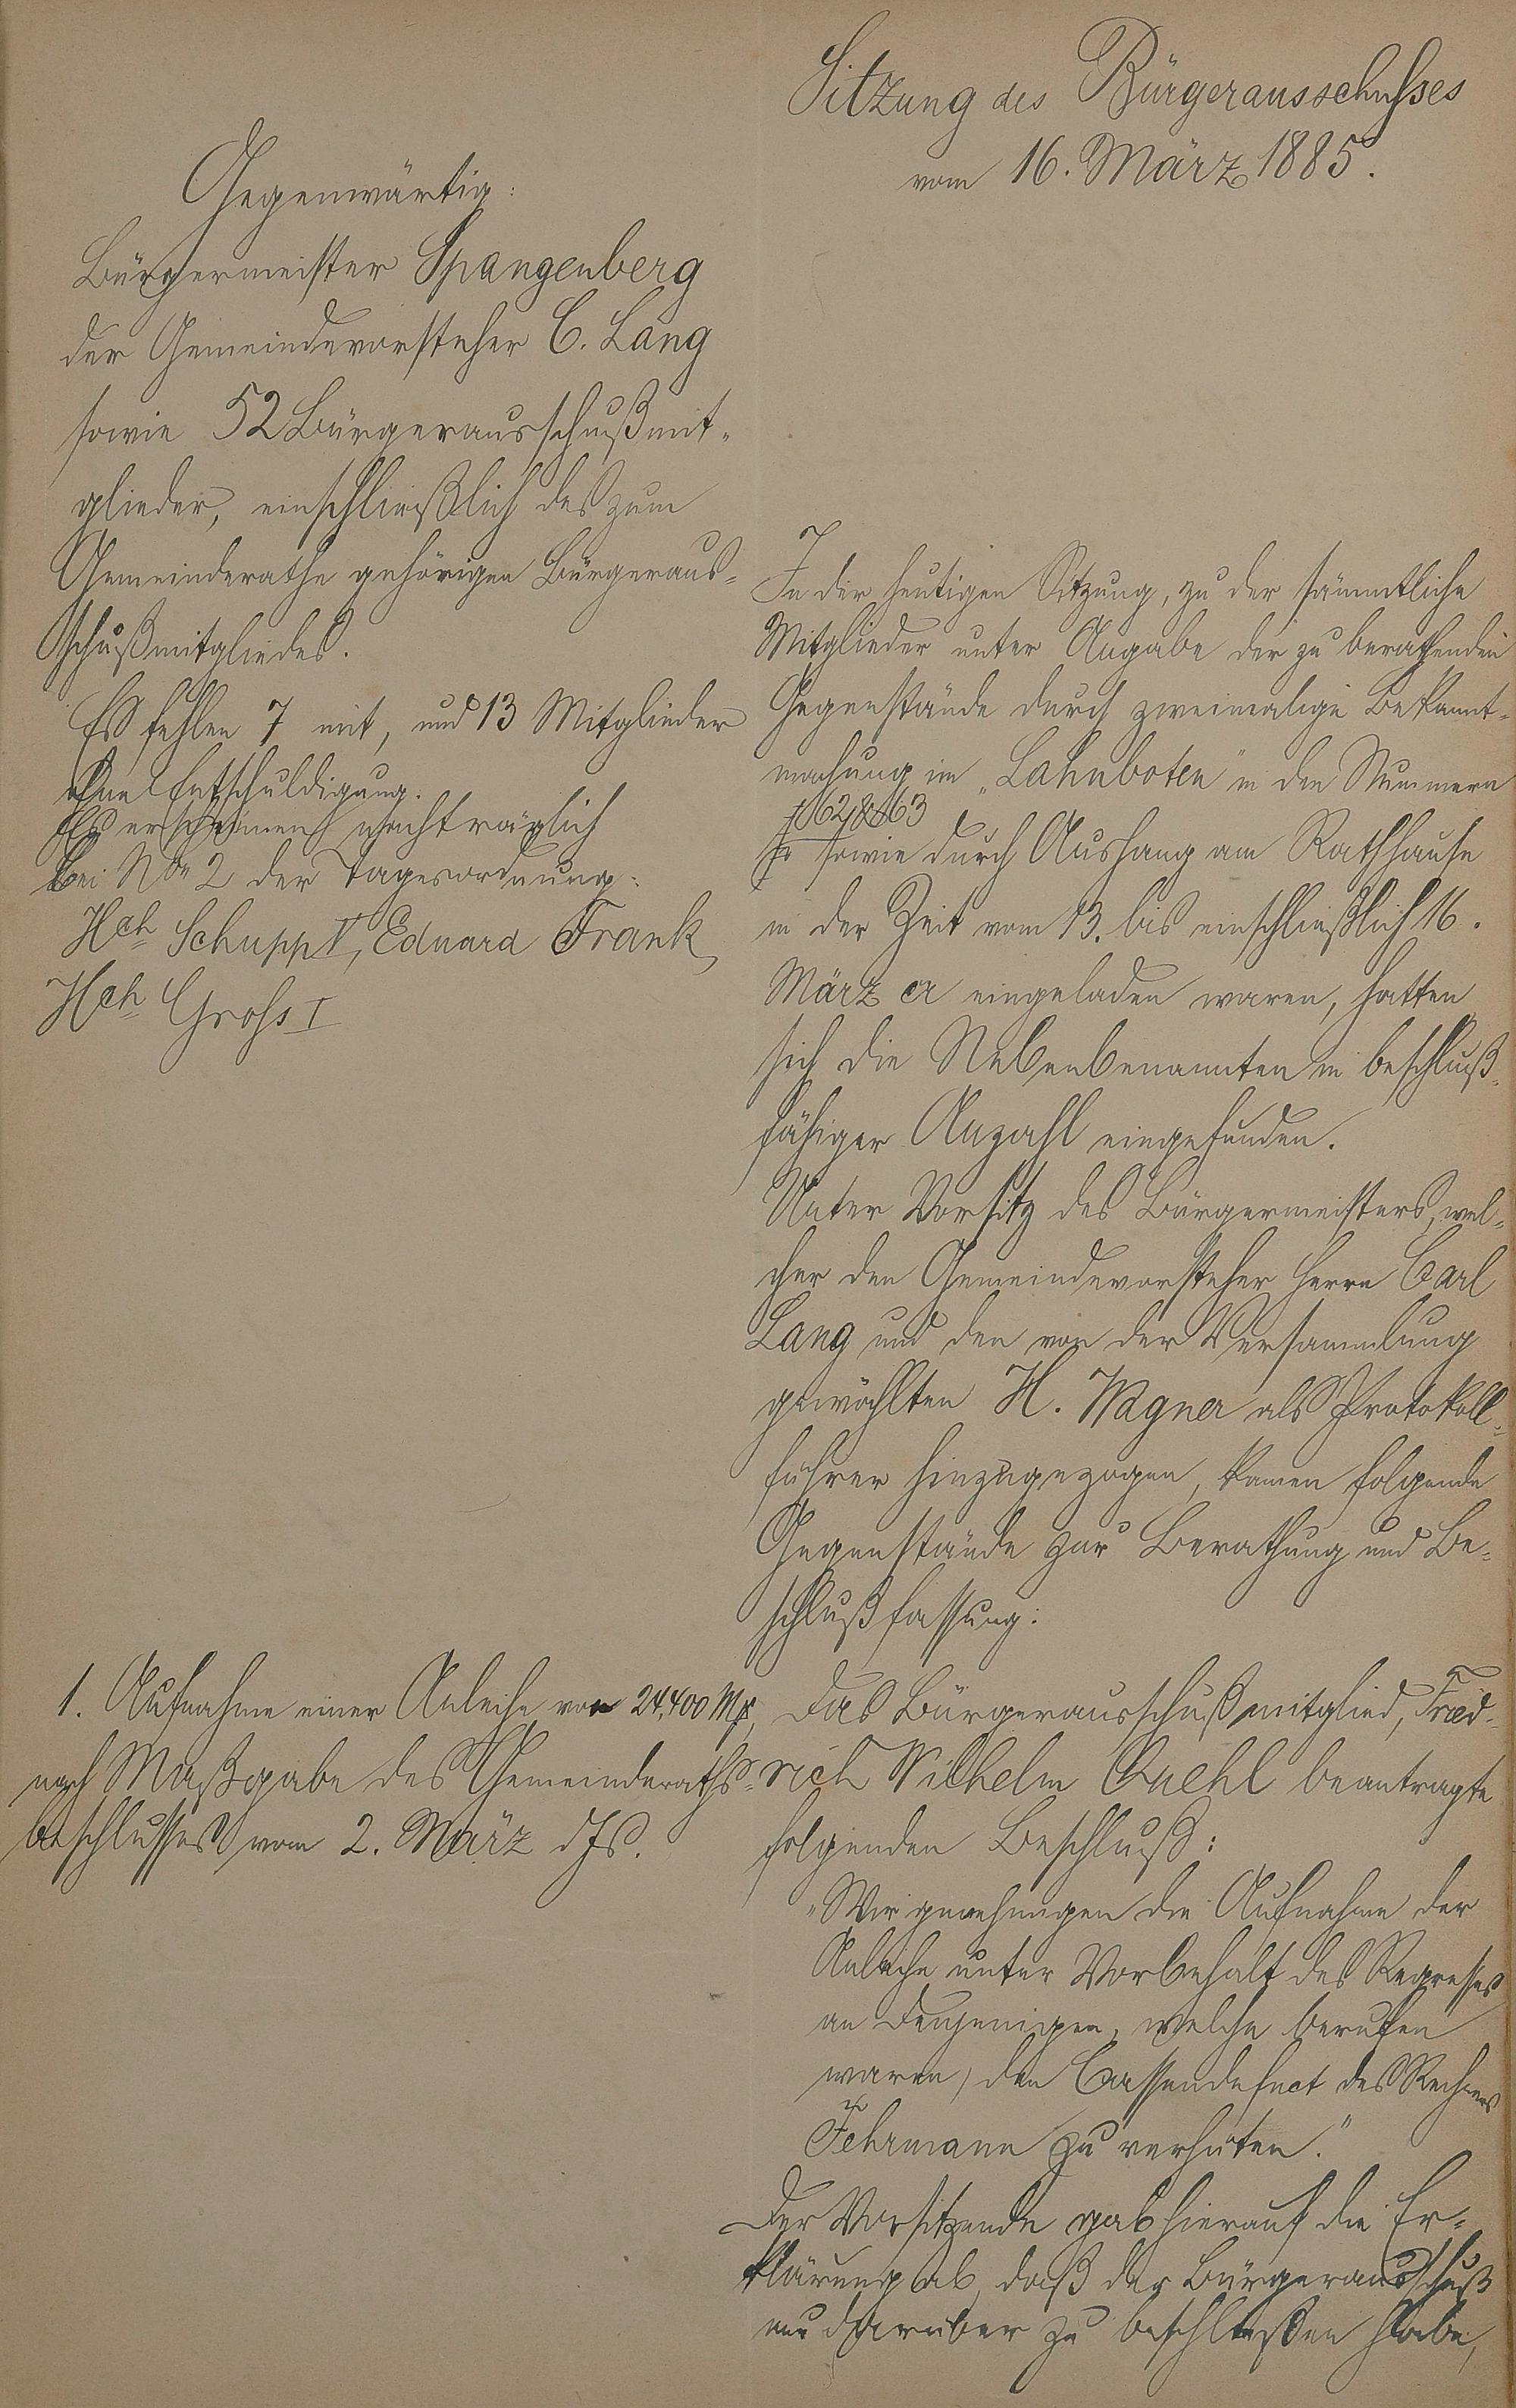 Sitzung des Bürgerausschusses
vom 16. März 1885.
Gegenwärtig:
Bürgermeister Spangenberg
der Gemeindevorsteher C. Lang
sowie 52 Bürgerausschußmit-
glieder, einschließlich des zum
Gemeinderathe gehörigen Bürgeraus-
schußmitgliedes.
Es fehlen 7 mit, und 13 Mitglieder
ohne Entschuldigung.
Es erscheinen nachträglich
bei No 2 der Tagesordnung:
Hch Schupp V, Eduard Frank,
Hch Groß I
In der heutigen Sitzung, zu der sämmtliche
Mitglieder unter Angabe der zu berathenden
Gegenstände durch zweimalige Bekannt-
machung im „Lahnboten" in den Nummern
62 & 63
sowie durch Aushang am Rathhause
in der Zeit vom 13. bis einschließlich 16.
März cr eingeladen waren, hatten
sich die Nebenbenannten in beschluß-
fähiger Anzahl eingefunden.
Unter Vorsitz des Bürgermeisters, wel-
cher den Gemeindevorsteher Herrn Carl
Lang und den von der Versammlung
gewählten H. Wagner als Protokoll-
führer hinzugezogen, kamen folgende
Gegenstände zur Berathung und Be-
schlußfassung:
1. Aufnahme einer Anleihe von 24,400 Mk,
nach Maßgabe des Gemeinderaths-
beschlusses vom 2. März djs.
Das Bürgerausschußmitglied, Fried-
rich Wilhelm Buehl beantragte
folgenden Beschluß:
„Wir genehmigen die Aufnahme der
Anleihe unter Vorbehalt des Regresses
an Denjenigen, welche berufen
waren, den Cassendefect des Rechners
Fehrmann zu verhüten."
Der Vorsitzende gab hierauf die Er-
klärung ab, daß der Bürgerausschuß
nur darüber zu beschließen habe,